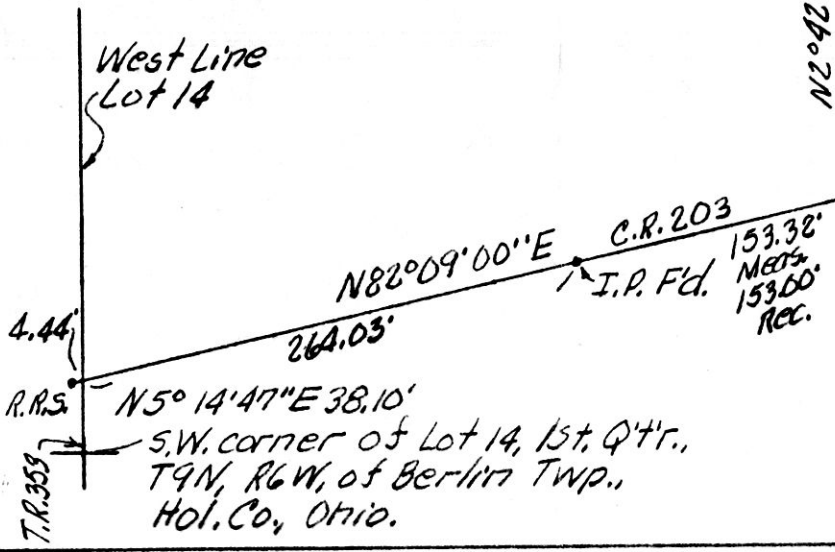 West Line
Lot 14
N2°42
C.R. 203
N82°09'00"E
153.32'
Meas.
153.00'
Rec.
I.P. F'd.
264.03'
4.44'
R.R.S.
N5°14'47"E 38.10'
S.W. corner of Lot 14, 1st. Q't'r.,
T9N, R6W, of Berlin Twp.,
Hol. Co., Ohio.
T.R. 353